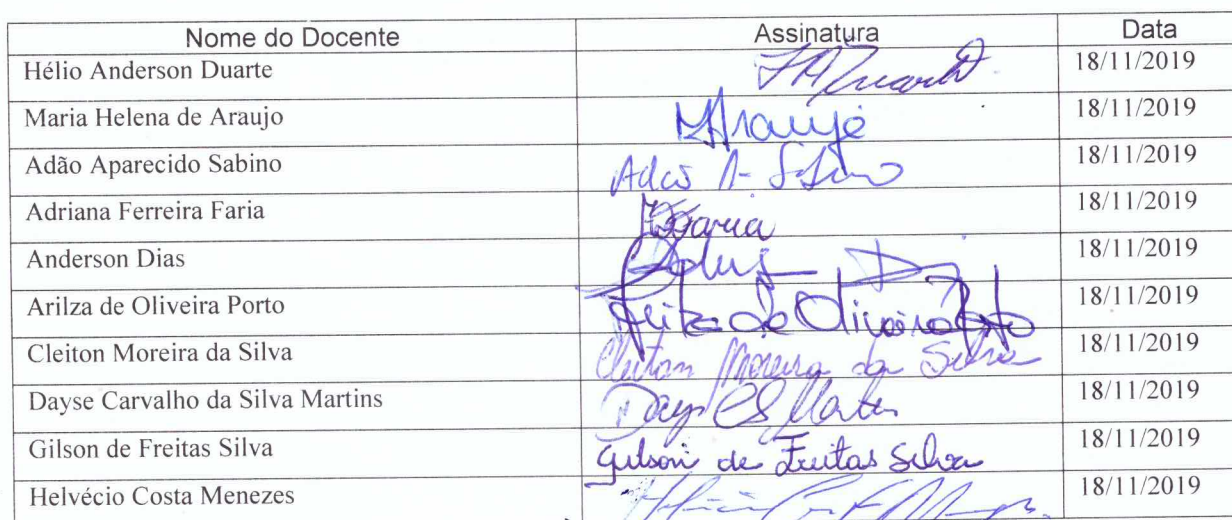 Nome do Docente Assinatura Data
Hélio Anderson Duarte HADuarte 18/11/2019
Maria Helena de Araujo MHAraujo 18/11/2019
Adão Aparecido Sabino Adão A. Sabino 18/11/2019
Adriana Ferreira Faria AFFaria 18/11/2019
Anderson Dias 18/11/2019
Arilza de Oliveira Porto Arilza de Oliveira Porto 18/11/2019
Cleiton Moreira da Silva Cleiton Moreira da Silva 18/11/2019
Dayse Carvalho da Silva Martins Dayse CS Martins 18/11/2019
Gilson de Freitas Silva Gilson de Freitas Silva 18/11/2019
Helvécio Costa Menezes 18/11/2019